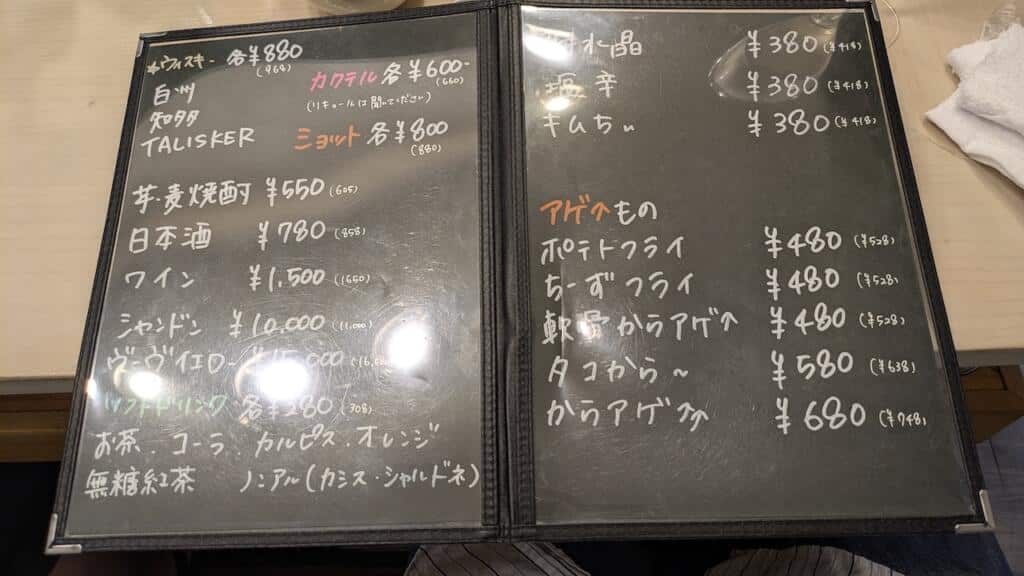 *ウィスキー 各¥880
(968)
白州
知多
TALISKER
カクテル 各¥600-
(660)
(リキュールは聞いてください)
ショット 各¥800
(880)
芋・麦焼酎 ¥550(605)
日本酒 ¥780(858)
ワイン ¥1,500(1650)
シャンドン ¥10,000(11,000)
ヴーヴイエロー
ソフトドリンク 各¥280(308)
お茶.コーラ.カルピス.オレンジ
無糖紅茶 ノンアル(カシス・シャルドネ)
水晶 ¥380(¥418)
塩辛 ¥380(¥418)
キムちぃ ¥380(¥418)
アゲ↑もの
ポテトフライ ¥480(¥528)
ちーずフライ ¥480(¥528)
軟骨からアゲ↑ ¥480(¥528)
タコから~ ¥580(¥638)
からアゲ↑↑ ¥680(¥748)